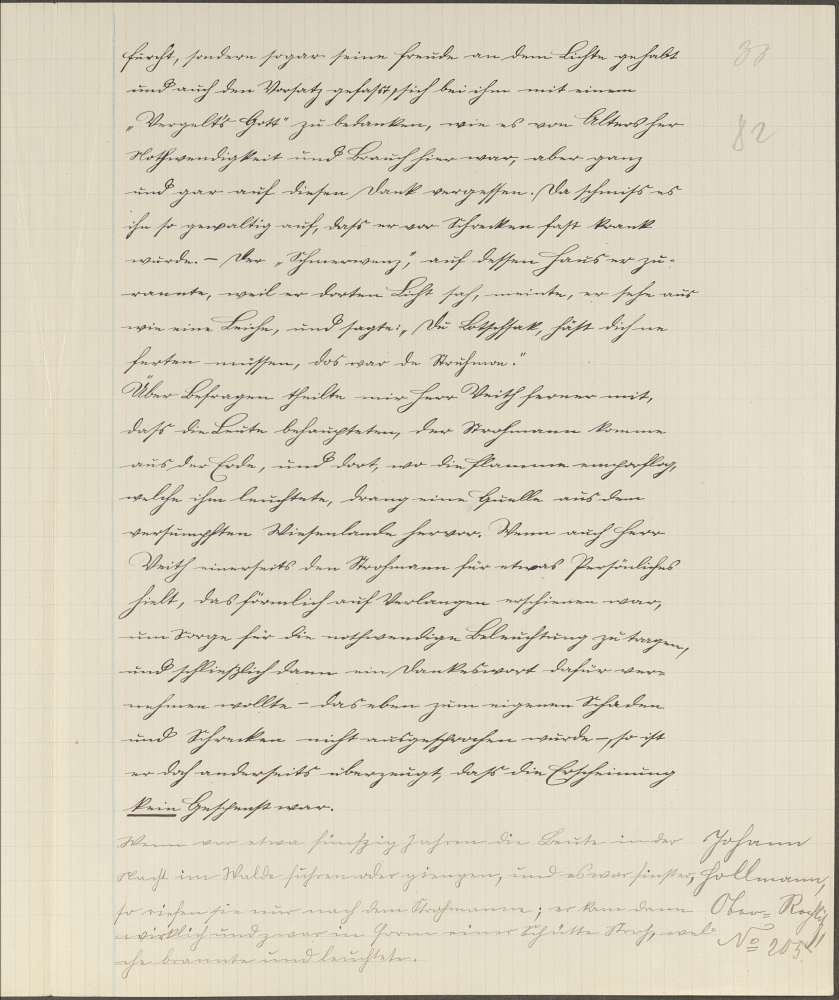 furcht, sondern sogar seine Freude an dem Lichte gehabt
und auch den Vorsatz gefasst, sich bei ihm mit einem
„Vergelt's Gott“ zu bedanken, wie es von Alters her
Nothwendigkeit und Brauch hier war, aber ganz
und gar auf diesen Dank vergessen. Da schmiss es
ihn so gewaltig auf, dass er vor Schrecken fast krank
wurde. – Der „Schmerwenz“, auf dessen Haus er zu-
rannte, weil er dorten Licht sah, meinte, er sehe aus
wie eine Leiche, und sagte: „Du hast dich
ferten müssen, dos war de Struhmon.“
Über Befragen theilte mir Herr Veith ferner mit,
dass die Leute behaupteten, der Strohmann komme
aus der Erde, und dort, wo die Flamme emporflog,
welche ihm leuchtete, drang eine Quelle aus dem
versumpften Wiesenlande hervor. Wenn auch Herr
Veith einerseits den Strohmann für etwas Persönliches
hielt, das förmlich auf Verlangen erschienen war,
um Sorge für die nothwendige Beleuchtung zu tragen,
und schließlich dann ein Dankeswort dafür ver-
nehmen wollte – das eben zum eigenen Schaden
und Schrecken nicht ausgesprochen wurde –, so ist
er doch anderseits überzeugt, dass die Erscheinung
kein Gespenst war.
Wenn vor etwa fünfzig Jahren die Leute in der
Nacht im Walde fuhren oder giengen, und es war finster,
so riefen sie nur nach dem Strohmanne; er kam dann
wirklich und zwar in Form einer Schütte Stroh, wel-
che brannte und leuchtete.
Johann
Hollmann,
Ober-
No 205.
82